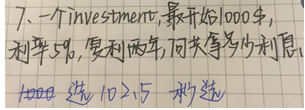 7、一个investment,最开始1000$,
利率5%,复利两年,问共得多少利息,
1000 选 102.5 秒选